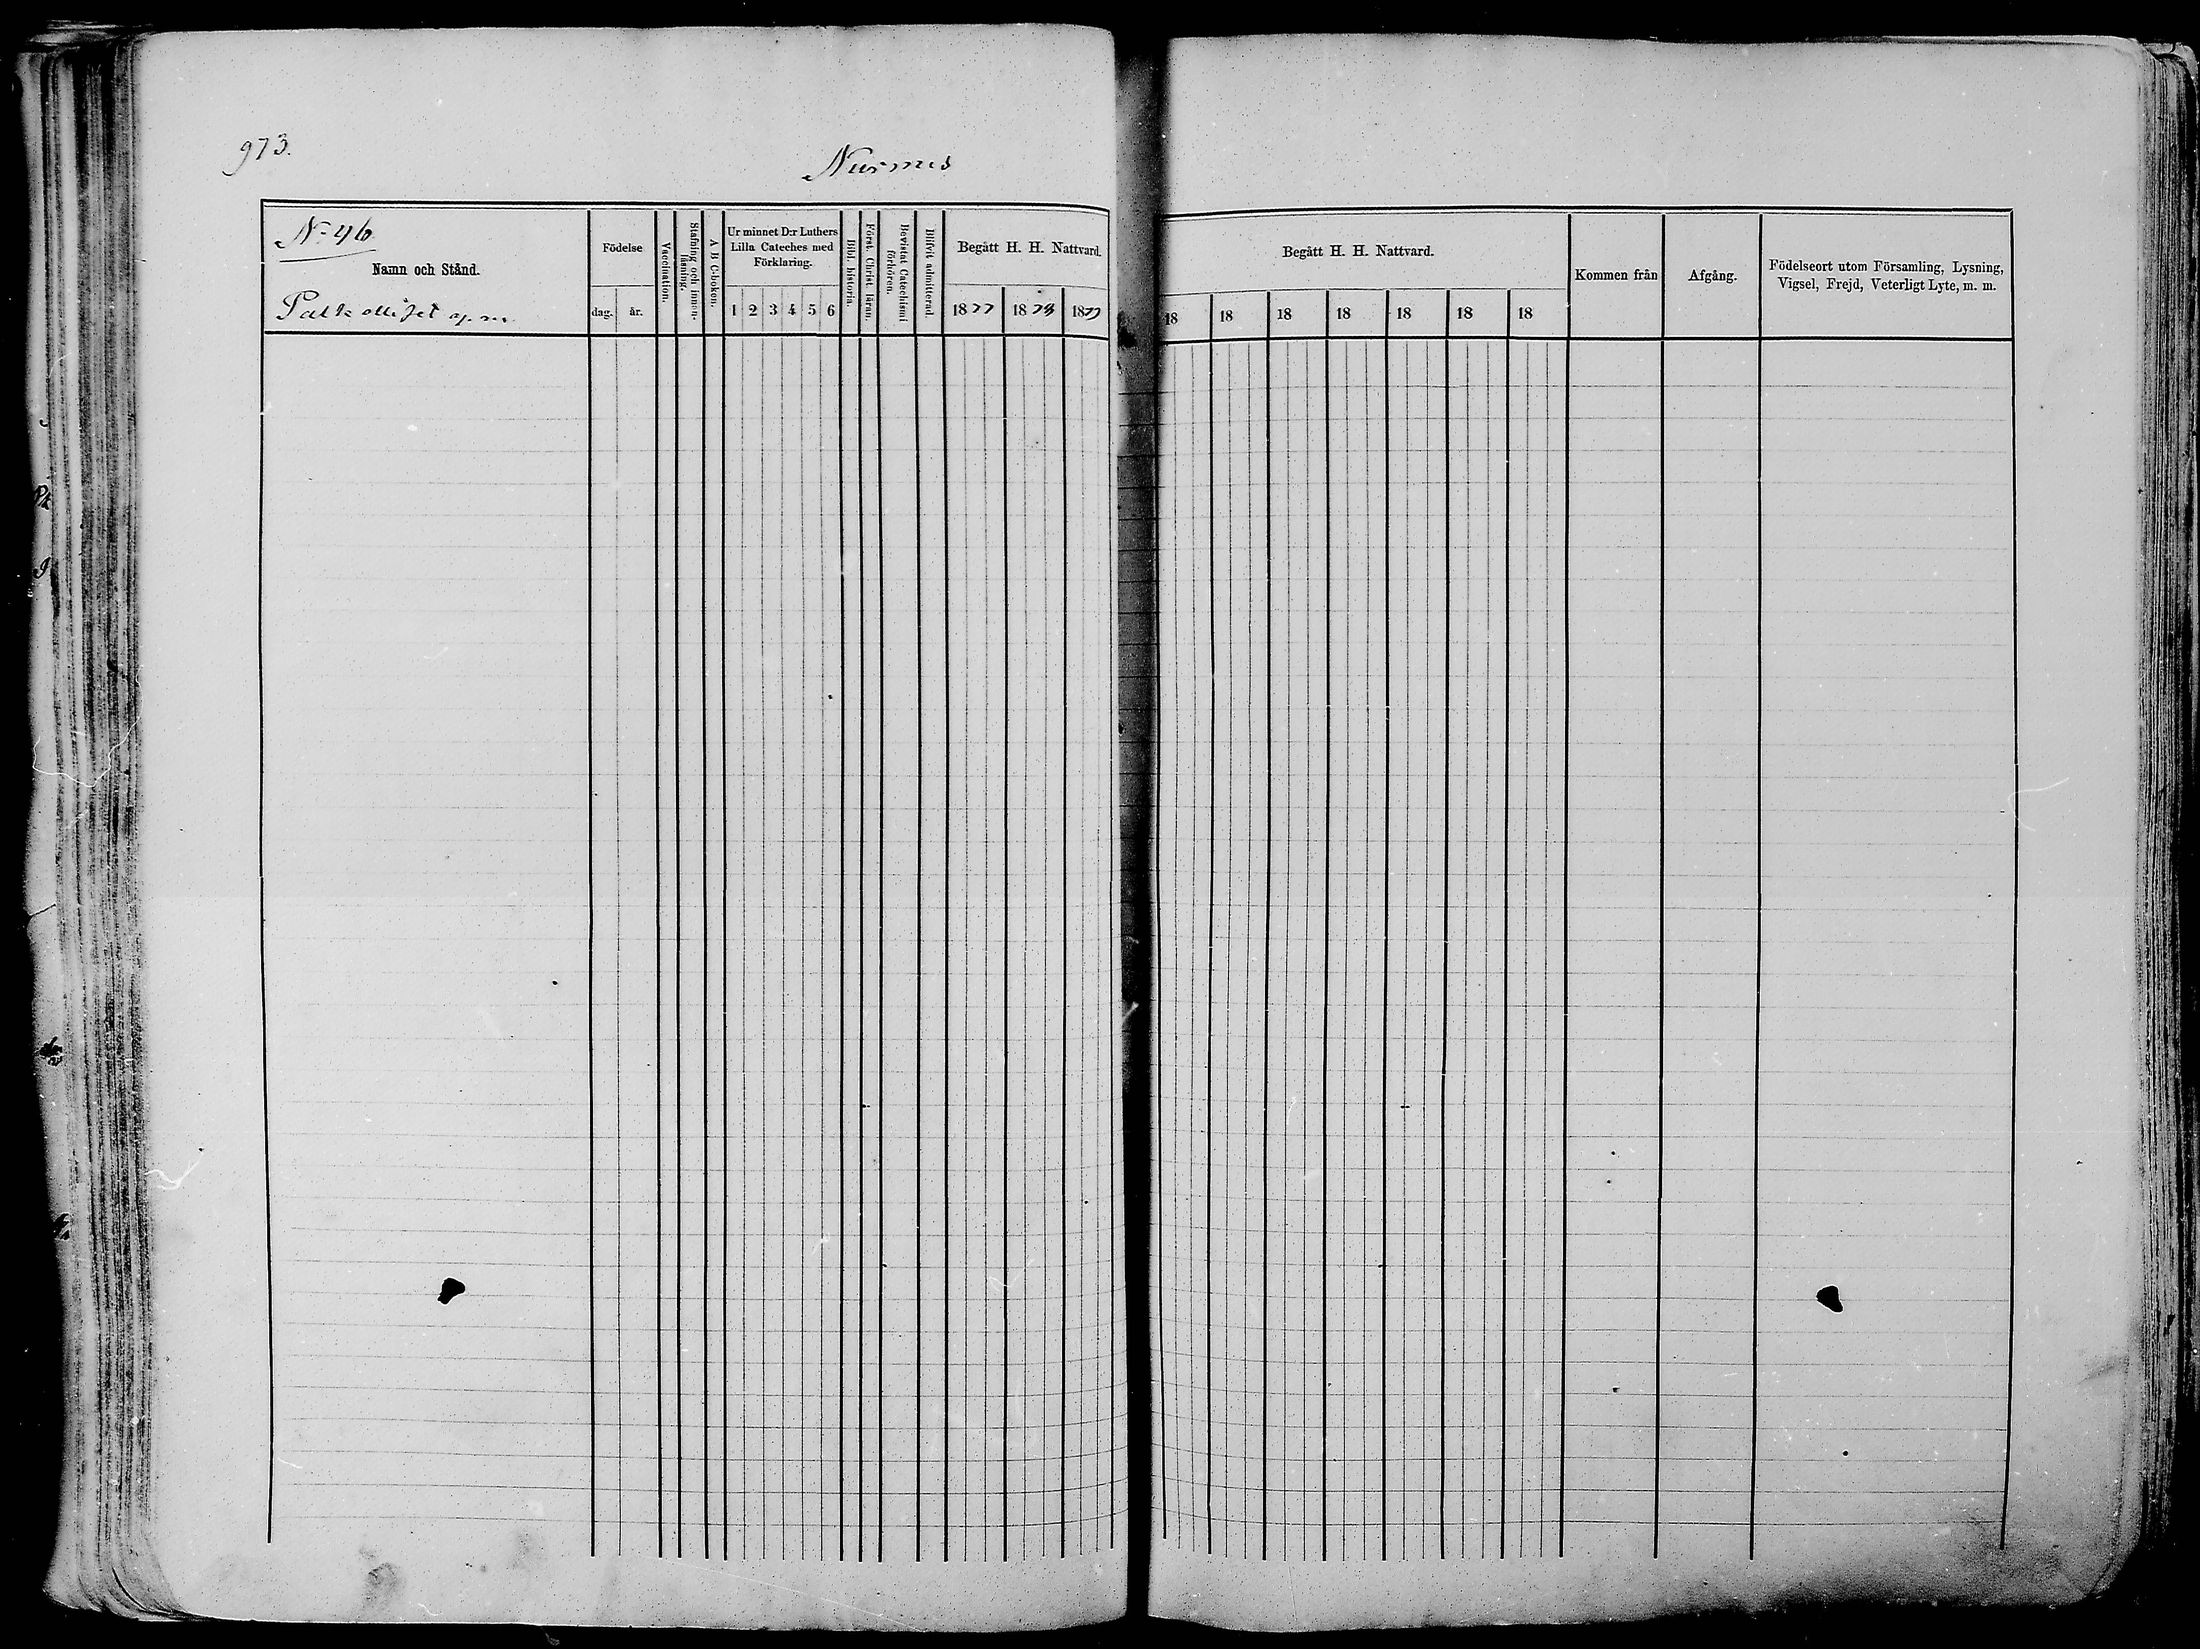 973.
Nurmes
No 46
Namn och Stånd.
Födelse
dag. år.
Vaccination.
Stafning och innan-
läsning.
A B C-boken.
Ur minnet D:r Luthers
Lilla Cateches med
Förklaring.
1 2 3 4 5 6
Bibl. historia.
Först. Christ. läran.
Bevistat Catechismi
förhören.
Blifvit admitterad.
Begått H. H. Nattvard.
1877 1878 1879
Begått H. H. Nattvard.
18 18 18 18 18 18 18
Kommen från
Afgång.
Födelseort utom Församling, Lysning,
Vigsel, Frejd, Veterligt Lyte, m. m.